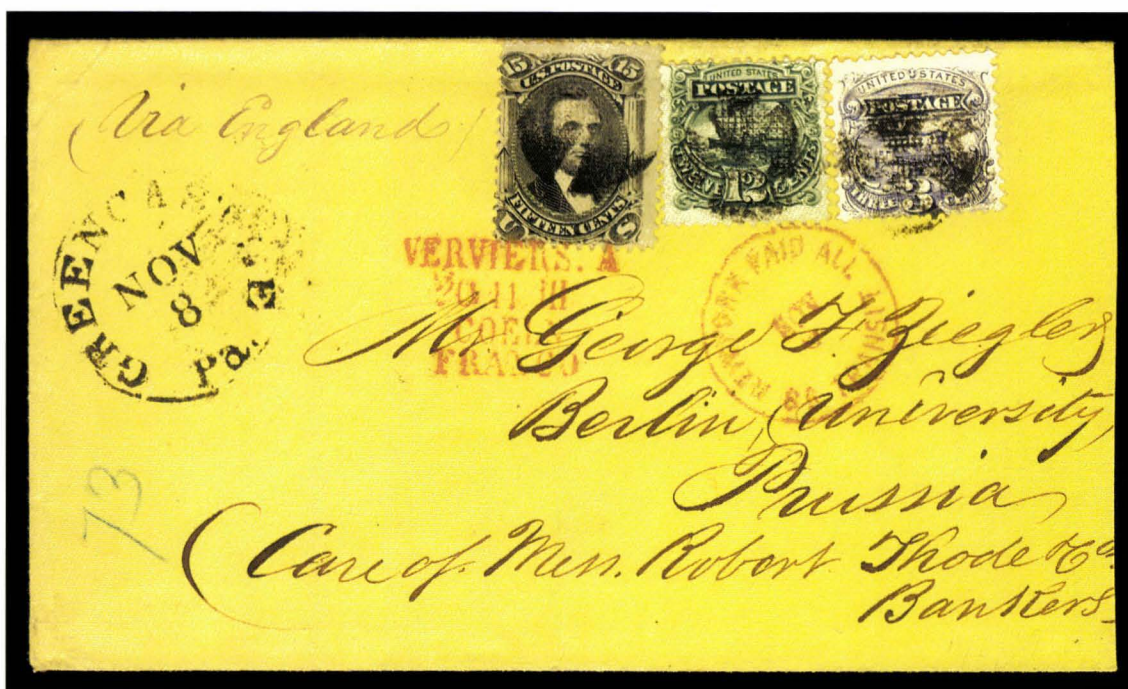 (Via England)
15 U.S. POSTAGE. 15
FIFTEEN CENTS
U S
UNITED STATES
POSTAGE
TWELVE 12 CENTS
UNITED STATES
POSTAGE
THREE 3 CENTS
GREENCASTLE
NOV
8
Pa.
VERVIERS. A
COELN
FRANCO
NEW YORK PAID ALL
NOV
Mr. George F. Ziegler
Berlin, (University)
Prussia
73
(Care of Mess. Robert Thode & Co.
Bankers